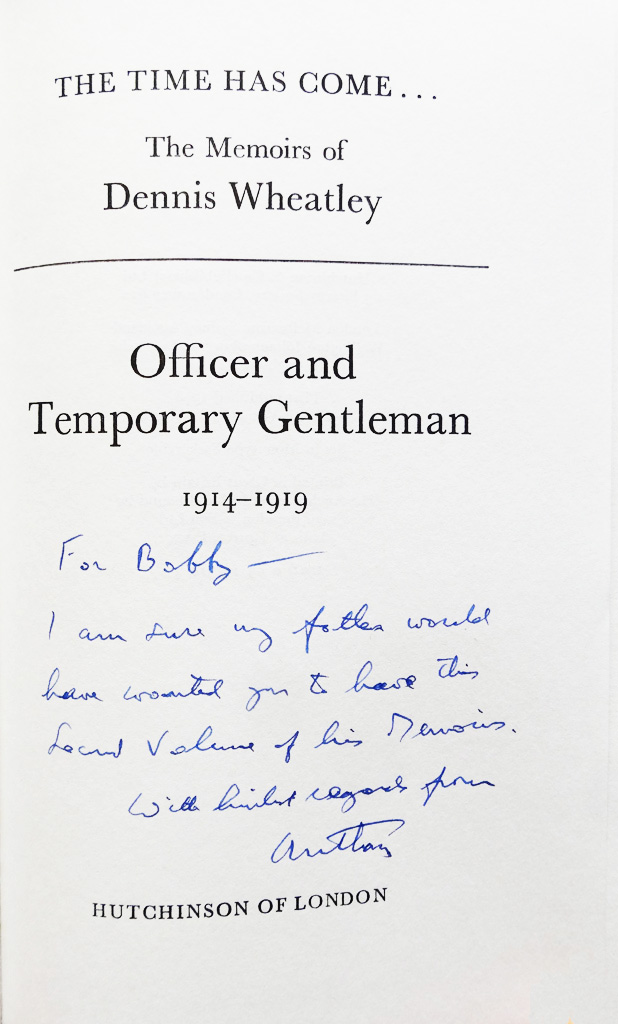 THE TIME HAS COME...
The Memoirs of
Dennis Wheatley
Officer and
Temporary Gentleman
1914–1919
For Bobby —
I am sure my father would
have wanted you to have this
Second Volume of his Memoirs.
With kindest regards from
Anthony
HUTCHINSON OF LONDON